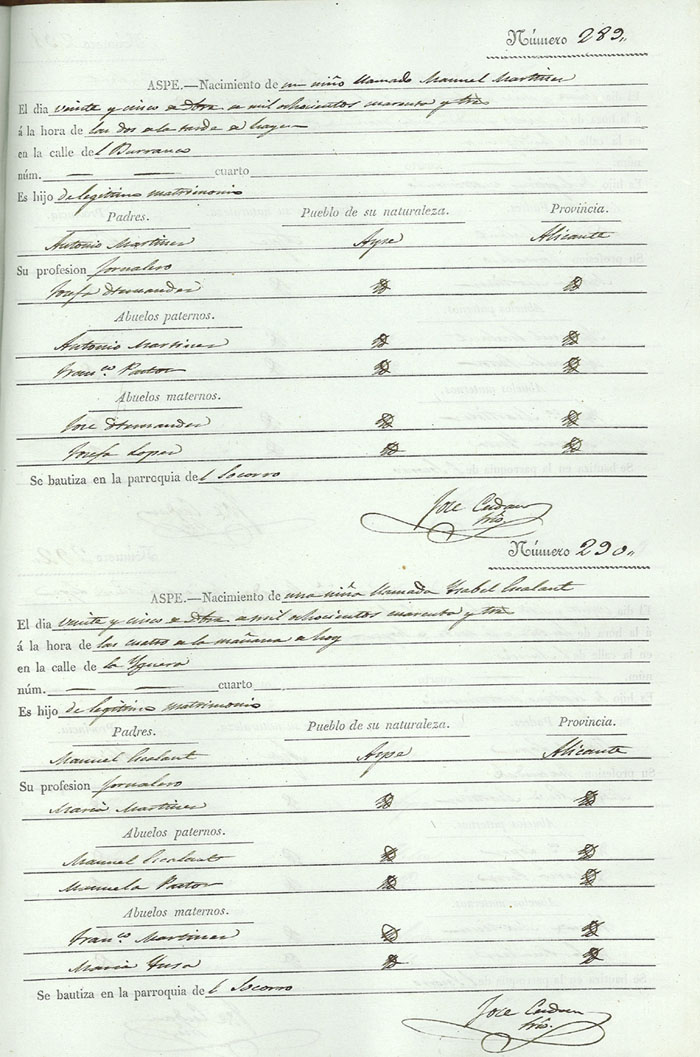 Número 289.
ASPE.—Nacimiento de un niño llamado Manuel Martinez
El dia veinte y cinco de Obre de mil ochocientos cuarenta y tres
á la hora de las dos de la tarde de hayer
en la calle del Barranco
núm. — — cuarto
Es hijo de legitimo matrimonio
Padres. Pueblo de su naturaleza. Provincia.
Antonio Martinez Aspe Alicante
Su profesion Jornalero
Josefa Hernandez
Abuelos paternos.
Antonio Martinez
Franca. Pastor
Abuelos maternos.
Jose Hernandez
Josefa Lopez
Se bautiza en la parroquia del Socorro
Jose
Número 290.
ASPE.—Nacimiento de una niña llamada Ysabel Escalant
El dia veinte y cinco de Obre de mil ochocientos cuarenta y tres
á la hora de las cuatro de la mañana de hoy
en la calle de la Yguera
núm. — — cuarto
Es hijo de legitimo matrimonio
Padres. Pueblo de su naturaleza. Provincia.
Manuel Escalant Aspe Alicante
Su profesion Jornalero
Maria Martinez
Abuelos paternos.
Manuel Escalant
Manuela Pastor
Abuelos maternos.
Franco. Martinez
Maria
Se bautiza en la parroquia del Socorro
Jose